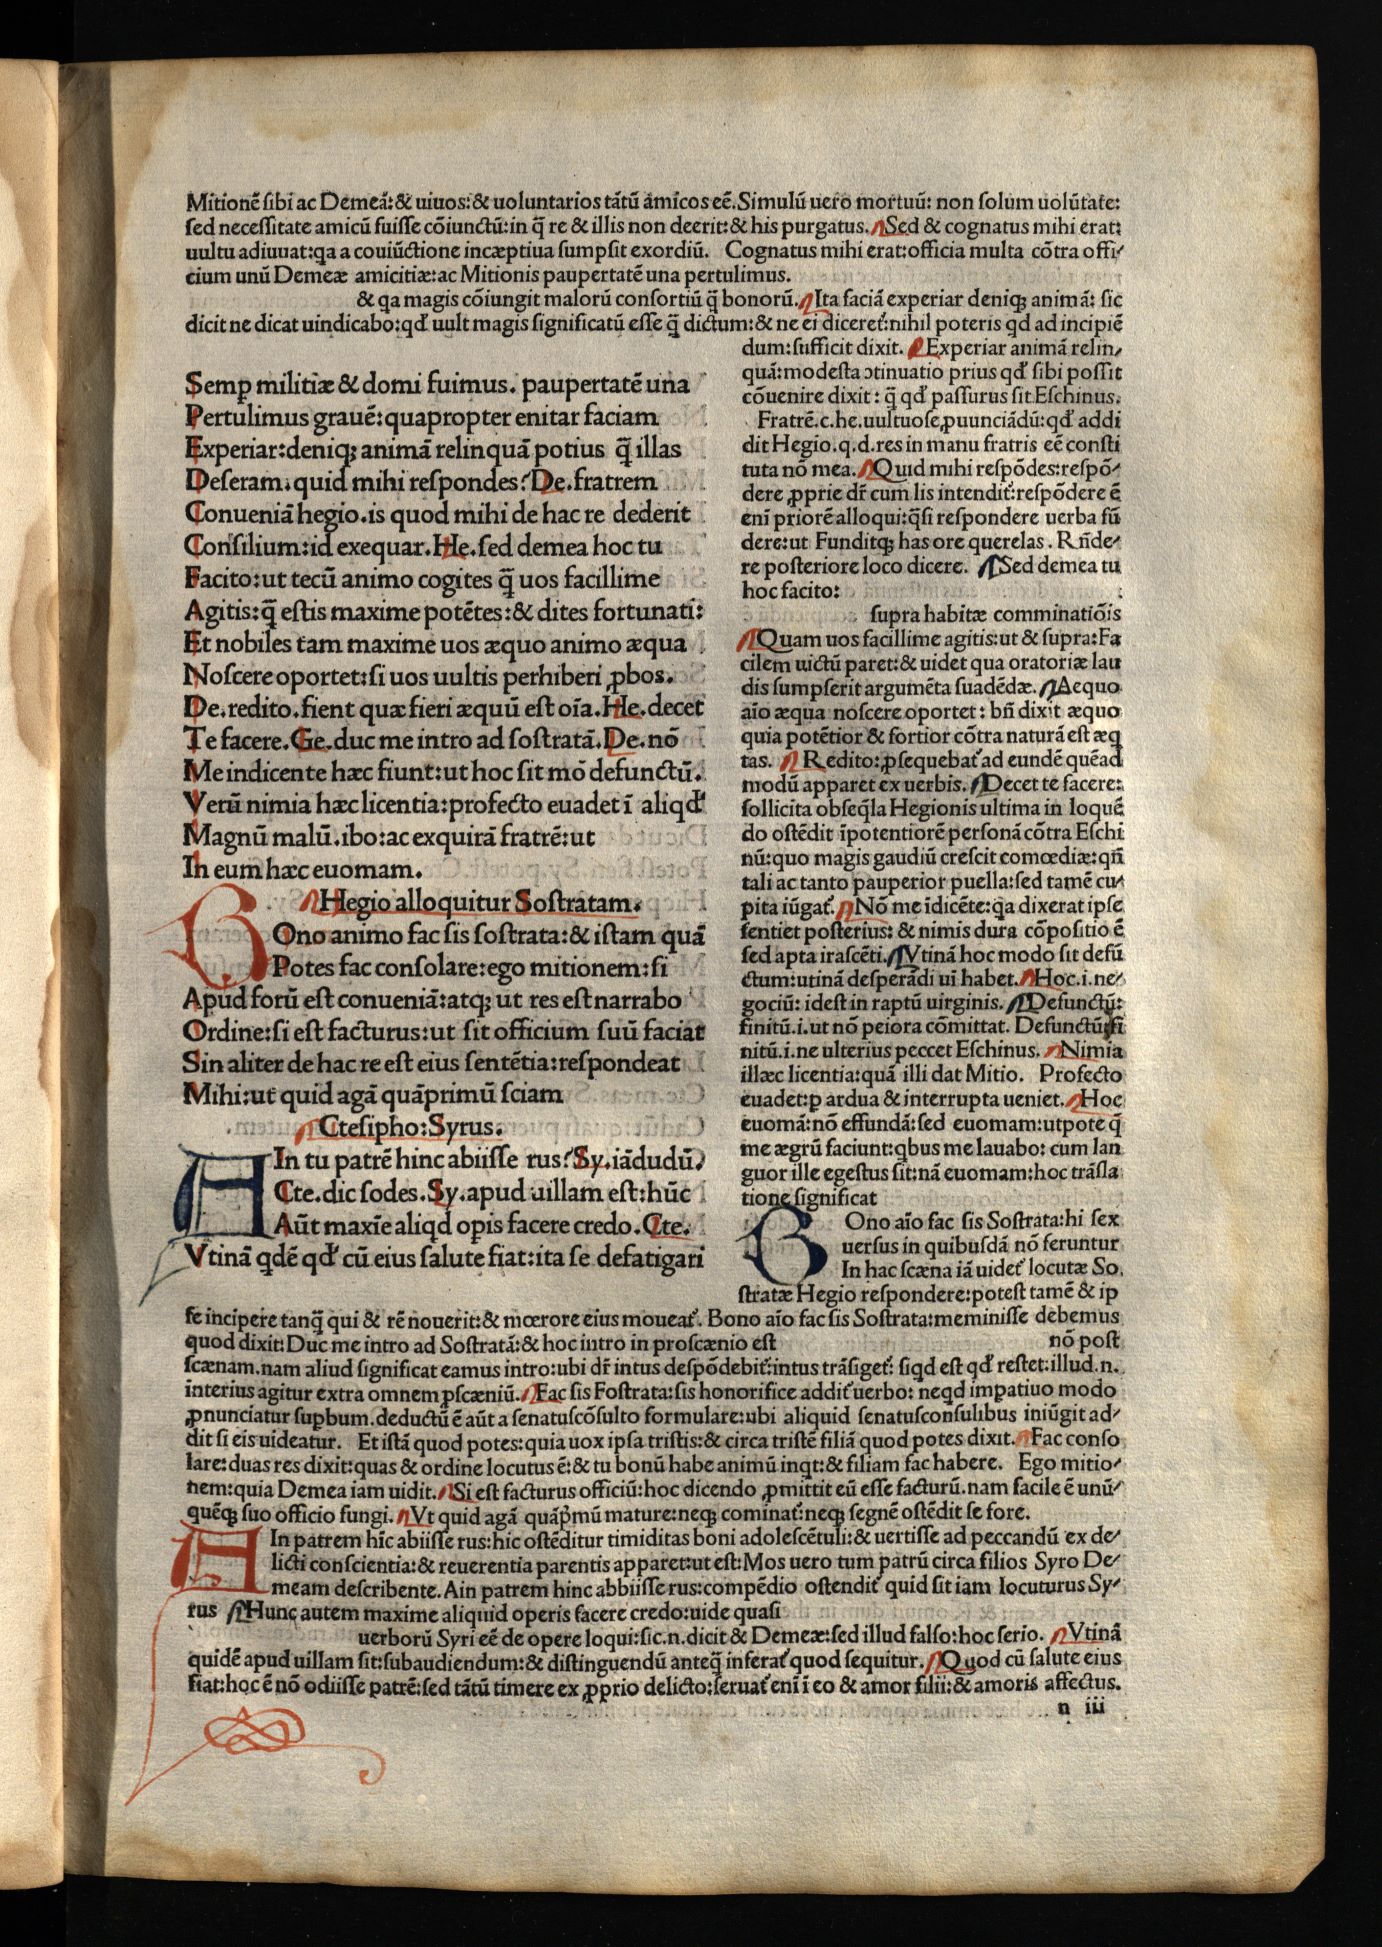 Mitionē sibi ac Demeā:& uiuos:& uoluntarios tātū amicos eē.Simulū uero mortuū: non solum uolūtate:
sed necessitate amicū fuisse cōiunctū:in q̄ re & illis non deerit:& his purgatus. Sed & cognatus mihi erat:
uultu adiuuat:qa a couiūctione incæptiua sumpsit exordiū. Cognatus mihi erat:officia multa cōtra offi-
cium unū Demeæ amicitiæ:ac Mitionis paupertatē una pertulimus.
& qa magis cōiungit malorū consortiū q̄ bonorū. Ita faciā experiar deniqꝫ animā: sic
dicit ne dicat uindicabo:qđ uult magis significatū esse q̄ dictum:& ne ei diceret̛:nihil poteris qd ad incipiē
dum:sufficit dixit. Experiar animā relin-
quā:modesta ↄtinuatio prius qđ sibi possit
cōuenire dixit: q̄ qđ passurus sit Eschinus.
Fratrē.c.he.uultuose ꝓnunciādū:qđ addi
dit Hegio.q.d.res in manu fratris eē consti
tuta nō mea. Quid mihi respōdes:respō-
dere ꝓprie dr̄ cum lis intendit̛:respōdere ē
eni priorē alloqui:q̄si respondere uerba fū
dere:ut Funditqꝫ has ore querelas. Rn̄de-
re posteriore loco dicere. Sed demea tu
hoc facito:
supra habitæ comminatiōis
Quam uos facillime agitis:ut & supra:Fa
cilem uictū paret:& uidet qua oratoriæ lau
dis sumpserit argumēta suadēdæ. Aequo
aīo æqua noscere oportet: bn̄ dixit æquo
quia potētior & fortior cōtra naturā est æq
tas. Redito:ꝓsequebat̛ ad eundē quēad
modū apparet ex uerbis. Decet te facere:
sollicita obseq̄la Hegionis ultima in loquē
do ostēdit īpotentiorē personā cōtra Eschi
nū:quo magis gaudiū crescit comœdiæ:qn̄
tali ac tanto pauperior puella:sed tamē cu-
pita iūgat̛. Nō me īdicēte:qa dixerat ipse
sentiet posterius: & nimis dura cōpositio ē
sed apta irascēti. Vtinā hoc modo sit defū
ctum:utinā desperādi uī habet. Hoc.i.ne-
gociū: idest in raptū uirginis. Defunctū:
finitū.i.ut nō peiora cōmittat. Defunctū:fi
nitū.i.ne ulterius peccet Eschinus. Nimia
illæc licentia:quā illi dat Mitio. Profecto
euadet:p ardua & interrupta ueniet. Hoc
euomā:nō effundā:sed euomam:utpote q̄
me ægrū faciunt:qbus me lauabo: cum lan
guor ille egestus sit:nā euomam:hoc trāsla
tione significat
Bono aīo fac sis Sostrata:hi sex
uersus in quibusdā nō feruntur
In hac scæna iā uidet̛ locutæ So
stratæ Hegio respondere:potest tamē & ip
Semꝑ militiæ & domi fuimus. paupertatē una
Pertulimus grauē:quapropter enitar faciam
Experiar:deniqꝫ animā relinquā potius q̄ illas
Deseram.quid mihi respondes? De.fratrem
Conueniā hegio.is quod mihi de hac re dederit
Consilium:id exequar.He.sed demea hoc tu
Facito:ut tecū animo cogites q̄ uos facillime
Agitis:q̄ estis maxime potētes:& dites fortunati:
Et nobiles tam maxime uos æquo animo æqua
Noscere oportet:si uos uultis perhiberi ꝓbos.
De.redito.fient quæ fieri æquū est oīa.He.decet
Te facere.Ge.duc me intro ad sostratā.De.nō
Me indicente hæc fiunt:ut hoc sit mō defunctū.
Verū nimia hæc licentia:profecto euadet ī aliqđ
Magnū malū.ibo:ac exquirā fratrē:ut
In eum hæc euomam.
Hegio alloquitur Sostratam.
Bono animo fac sis sostrata:& istam quā
Potes fac consolare:ego mitionem:si
Apud forū est conueniā:atqꝫ ut res est narrabo
Ordine:si est facturus:ut sit officium suū faciat
Sin aliter de hac re est eius sentētia:respondeat
Mihi:ut quid agā quāprimū sciam
Ctesipho:Syrus.
AIn tu patrē hinc abiisse rus? Sy.iādudū.
Cte.dic sodes.Sy.apud uillam est:hūc
Aūt maxīe aliqd opis facere credo.Cte.
Vtinā qdē qđ cū eius salute fiat:ita se defatigari
se incipere tanq̄ qui & rē nouerit:& mœrore eius moueat̛. Bono aīo fac sis Sostrata:meminisse debemus
quod dixit:Duc me intro ad Sostratā:& hoc intro in proscænio est nō post
scænam.nam aliud significat eamus intro:ubi dr̄ intus despōdebit̛:intus trāsiget̛: siqd est qđ restet:illud.n.
interius agitur extra omnem ꝓscæniū. Fac sis Fostrata:sis honorifice addit̛ uerbo: neqd impatiuo modo
ꝓnunciatur supbum.deductū ē aūt a senatuscōsulto formulare:ubi aliquid senatusconsulibus iniūgit ad-
dit si eis uideatur. Et istā quod potes:quia uox ipsa tristis:& circa tristē filiā quod potes dixit. Fac conso
lare:duas res dixit:quas & ordine locutus ē:& tu bonū habe animū inqt:& filiam fac habere. Ego mitio-
nem:quia Demea iam uidit. Si est facturus officiū:hoc dicendo ꝓmittit eū esse facturū.nam facile ē unū-
quēqꝫ suo officio fungi. Vt quid agā quāpmū mature:neqꝫ cominat̛:neqꝫ segnē ostēdit se fore.
AIn patrem hīc abiisse rus:hic ostēditur timiditas boni adolescētuli:& uertisse ad peccandū ex de-
licti conscientia:& reuerentia parentis apparet:ut est:Mos uero tum patrū circa filios Syro De-
meam describente.Ain patrem hinc abbiisse rus:compēdio ostendit̛ quid sit iam locuturus Sy-
rus Hunc autem maxime aliquid operis facere credo:uide quasi
uerborū Syri eē de opere loqui:sic.n.dicit & Demeæ:sed illud falso:hoc serio. Vtinā
quidē apud uillam sit:subaudiendum:& distinguendū anteq̄ inferat̛ quod sequitur. Quod cū salute eius
fiat:hoc ē nō odiisse patrē:sed tātū timere ex ꝓprio delicto:seruat̛ enī ī eo & amor filii:& amoris affectus.
n iii